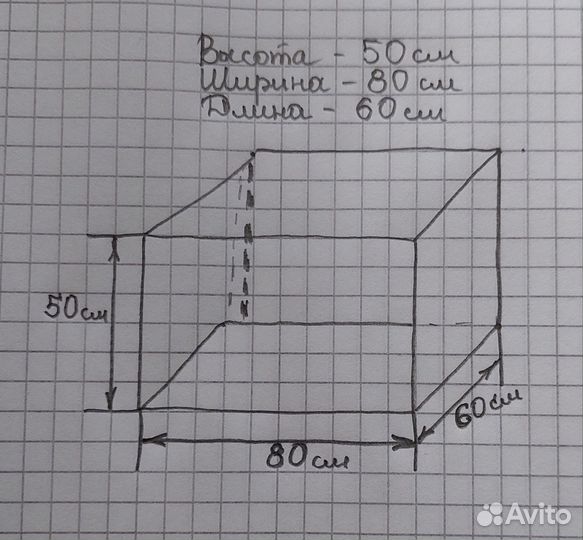 Высота - 50 см
Ширина - 80 см
Длина - 60 см
50 см
60 см
80 см
Avito